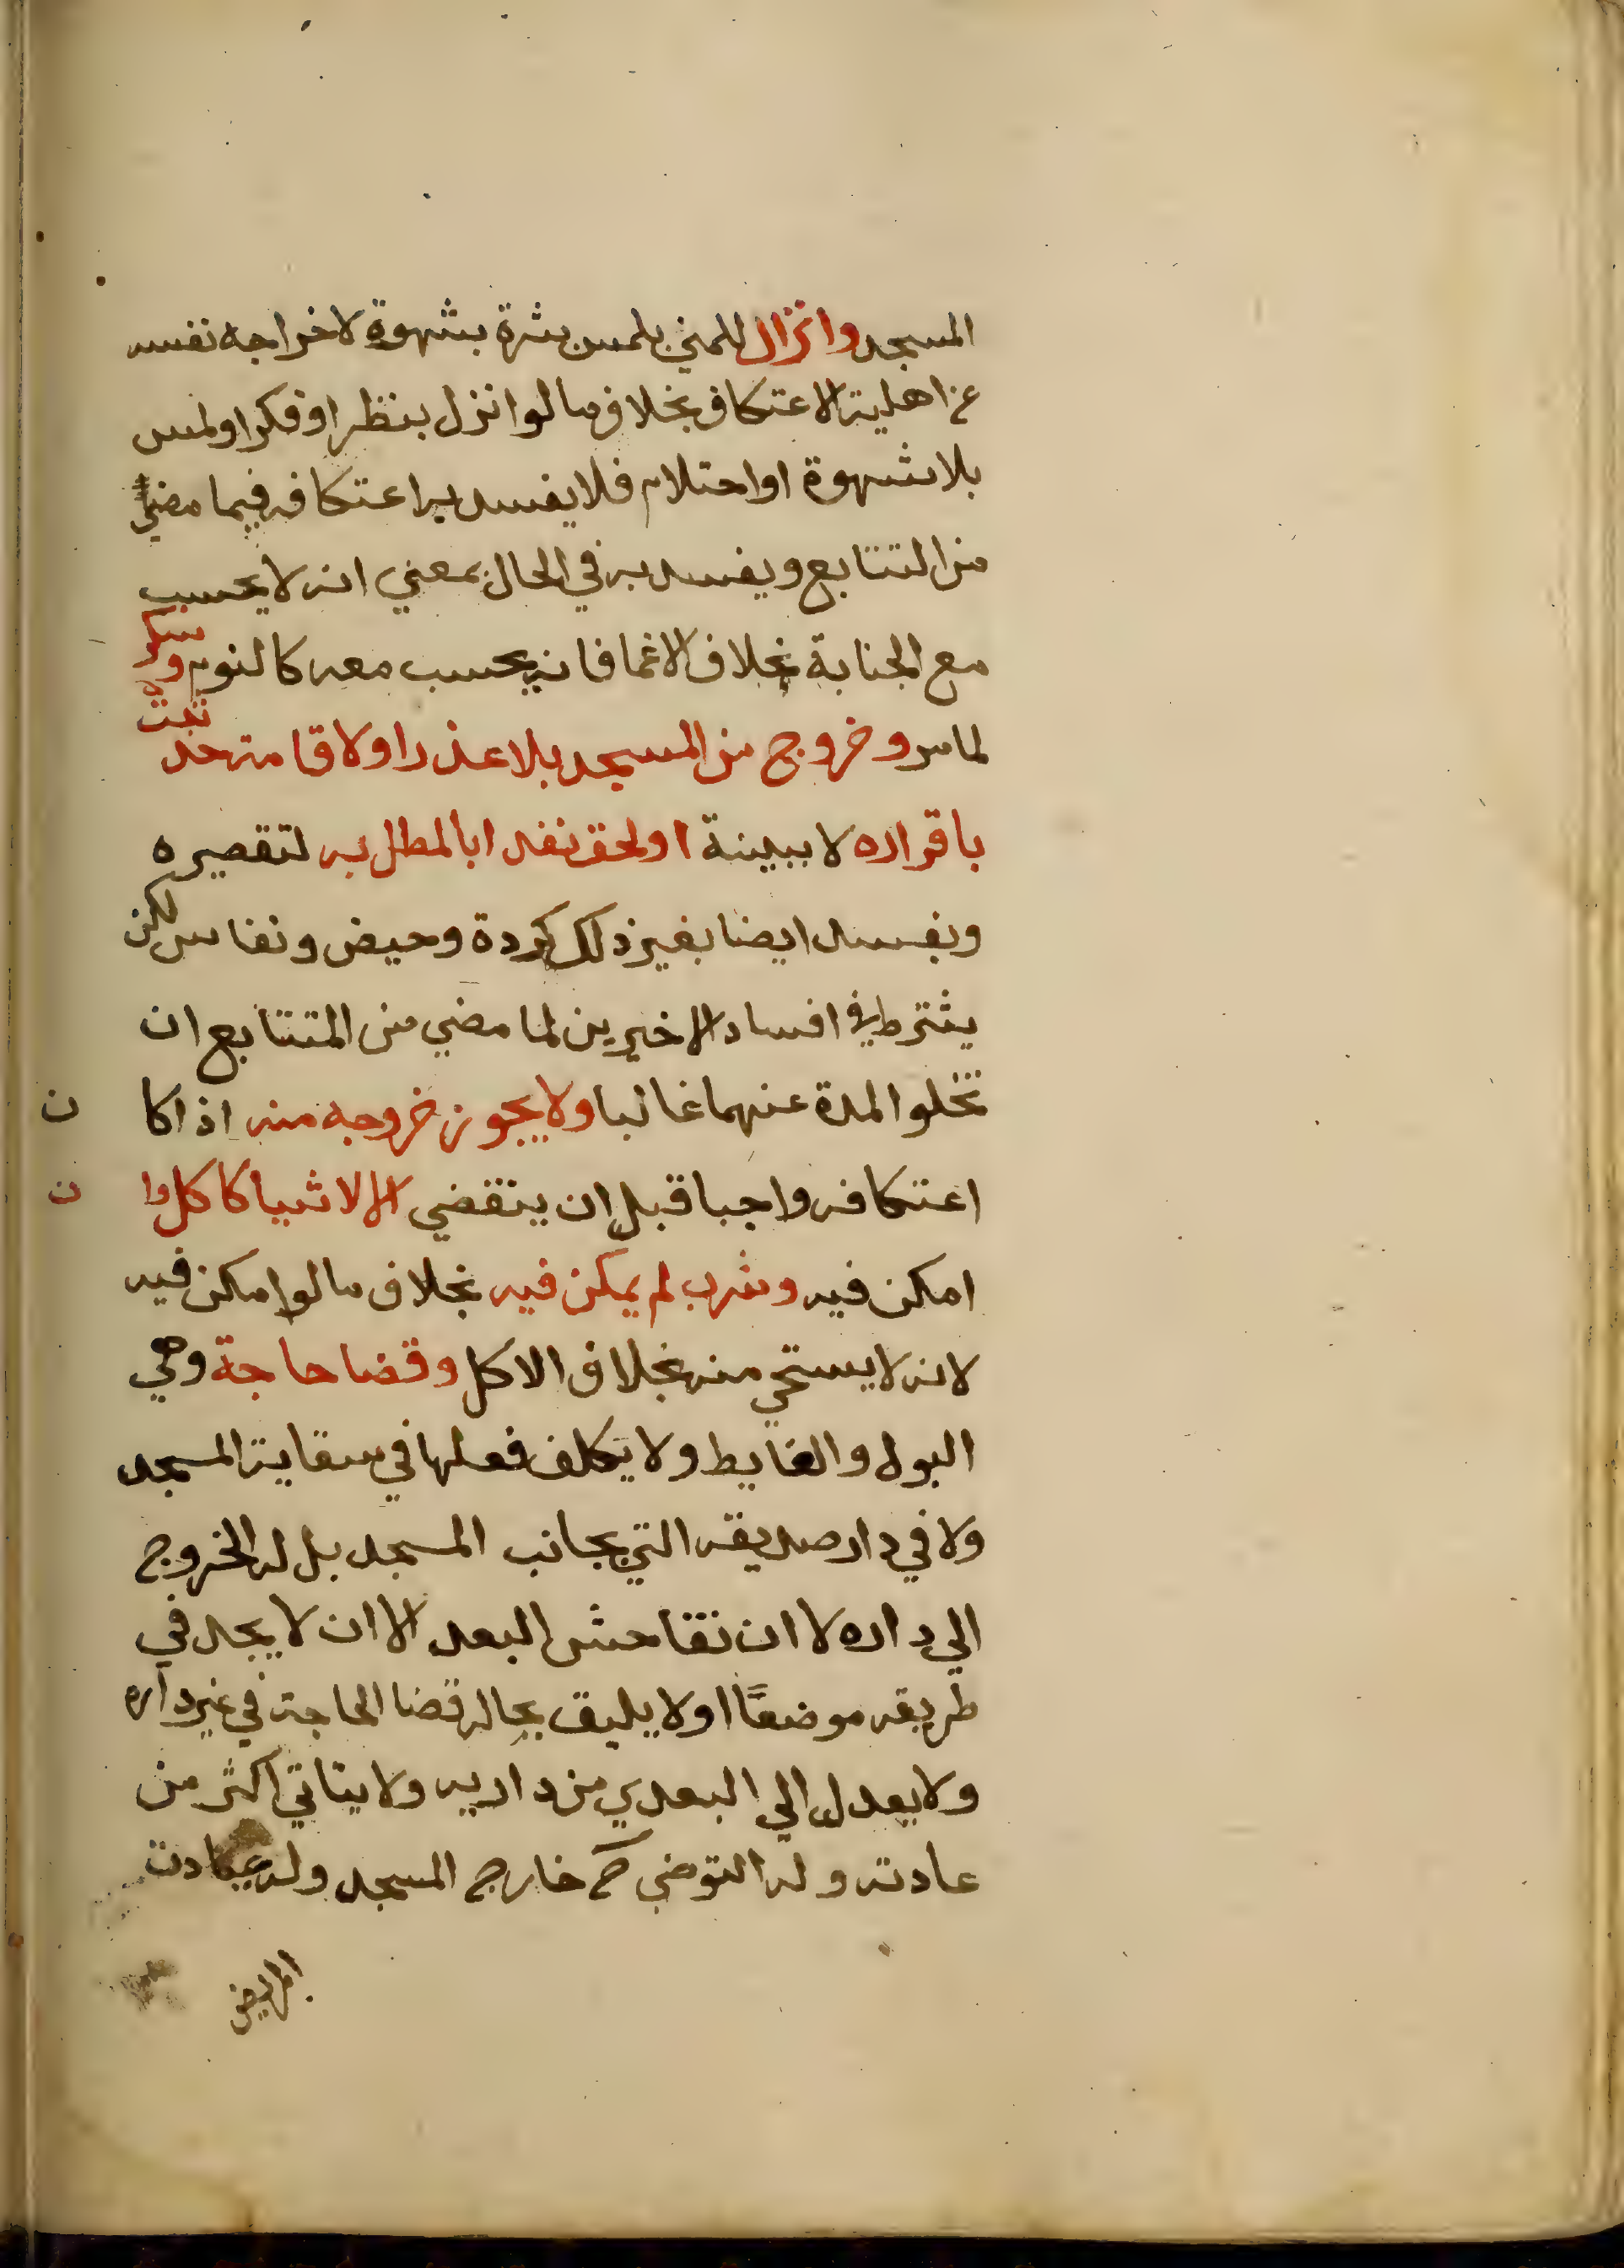 المسجد وانزال للمني بلمس بشرة بشهوة لاخراجه نفسه
عن اهلية الاعتكاف بخلاف ما لو انزل بنظر او فكر او لمس
بلا شهوة او احتلام فلا يفسد به اعتكافه فيما مضي
من التتابع ويفسد به في الحال بمعني انه لا يحسب
مع الجنابة بخلاف الاغما فانه يحسب معه كالنوم وسكر
لما مر وخروج من المسجد بلا عذر او لاقامة حد ثبت
باقراره لا ببينة او لحق نفد ابا لمطل به لتقصيره
ويفسد ايضا بغير ذلك كردة وحيض ونفاس لكن
يشترط في افساد الاخيرين لما مضي من المتتابع ان
تخلوا المدة عنهما غالبا ولا يجوز خروجه منه اذا كا ن
اعتكافه واجبا قبل ان ينقضي الا لاشيا كاكل وا ن
امكن فيه وشرب لم يمكن فيه بخلاف ما لو امكن فيه
لانه لا يستحي منه بخلاف الاكل وقضا حاجة وهي
البول والغايط ولا يكلف فعلها في سقاية المسجد
ولا في دار صديقه التي بجانب المسجد بل له الخروج
الي داره لا ان تفاحش البعد الا ان لا يجد في
طريقه موضعًا او لا يليق بحاله قضا الحاجة في غير داره
ولا يعدل الي البعدي من داريه ولا يتاتي اكثر من
عادته وله التوضي ح خارج المسجد وله عيادت
المريض